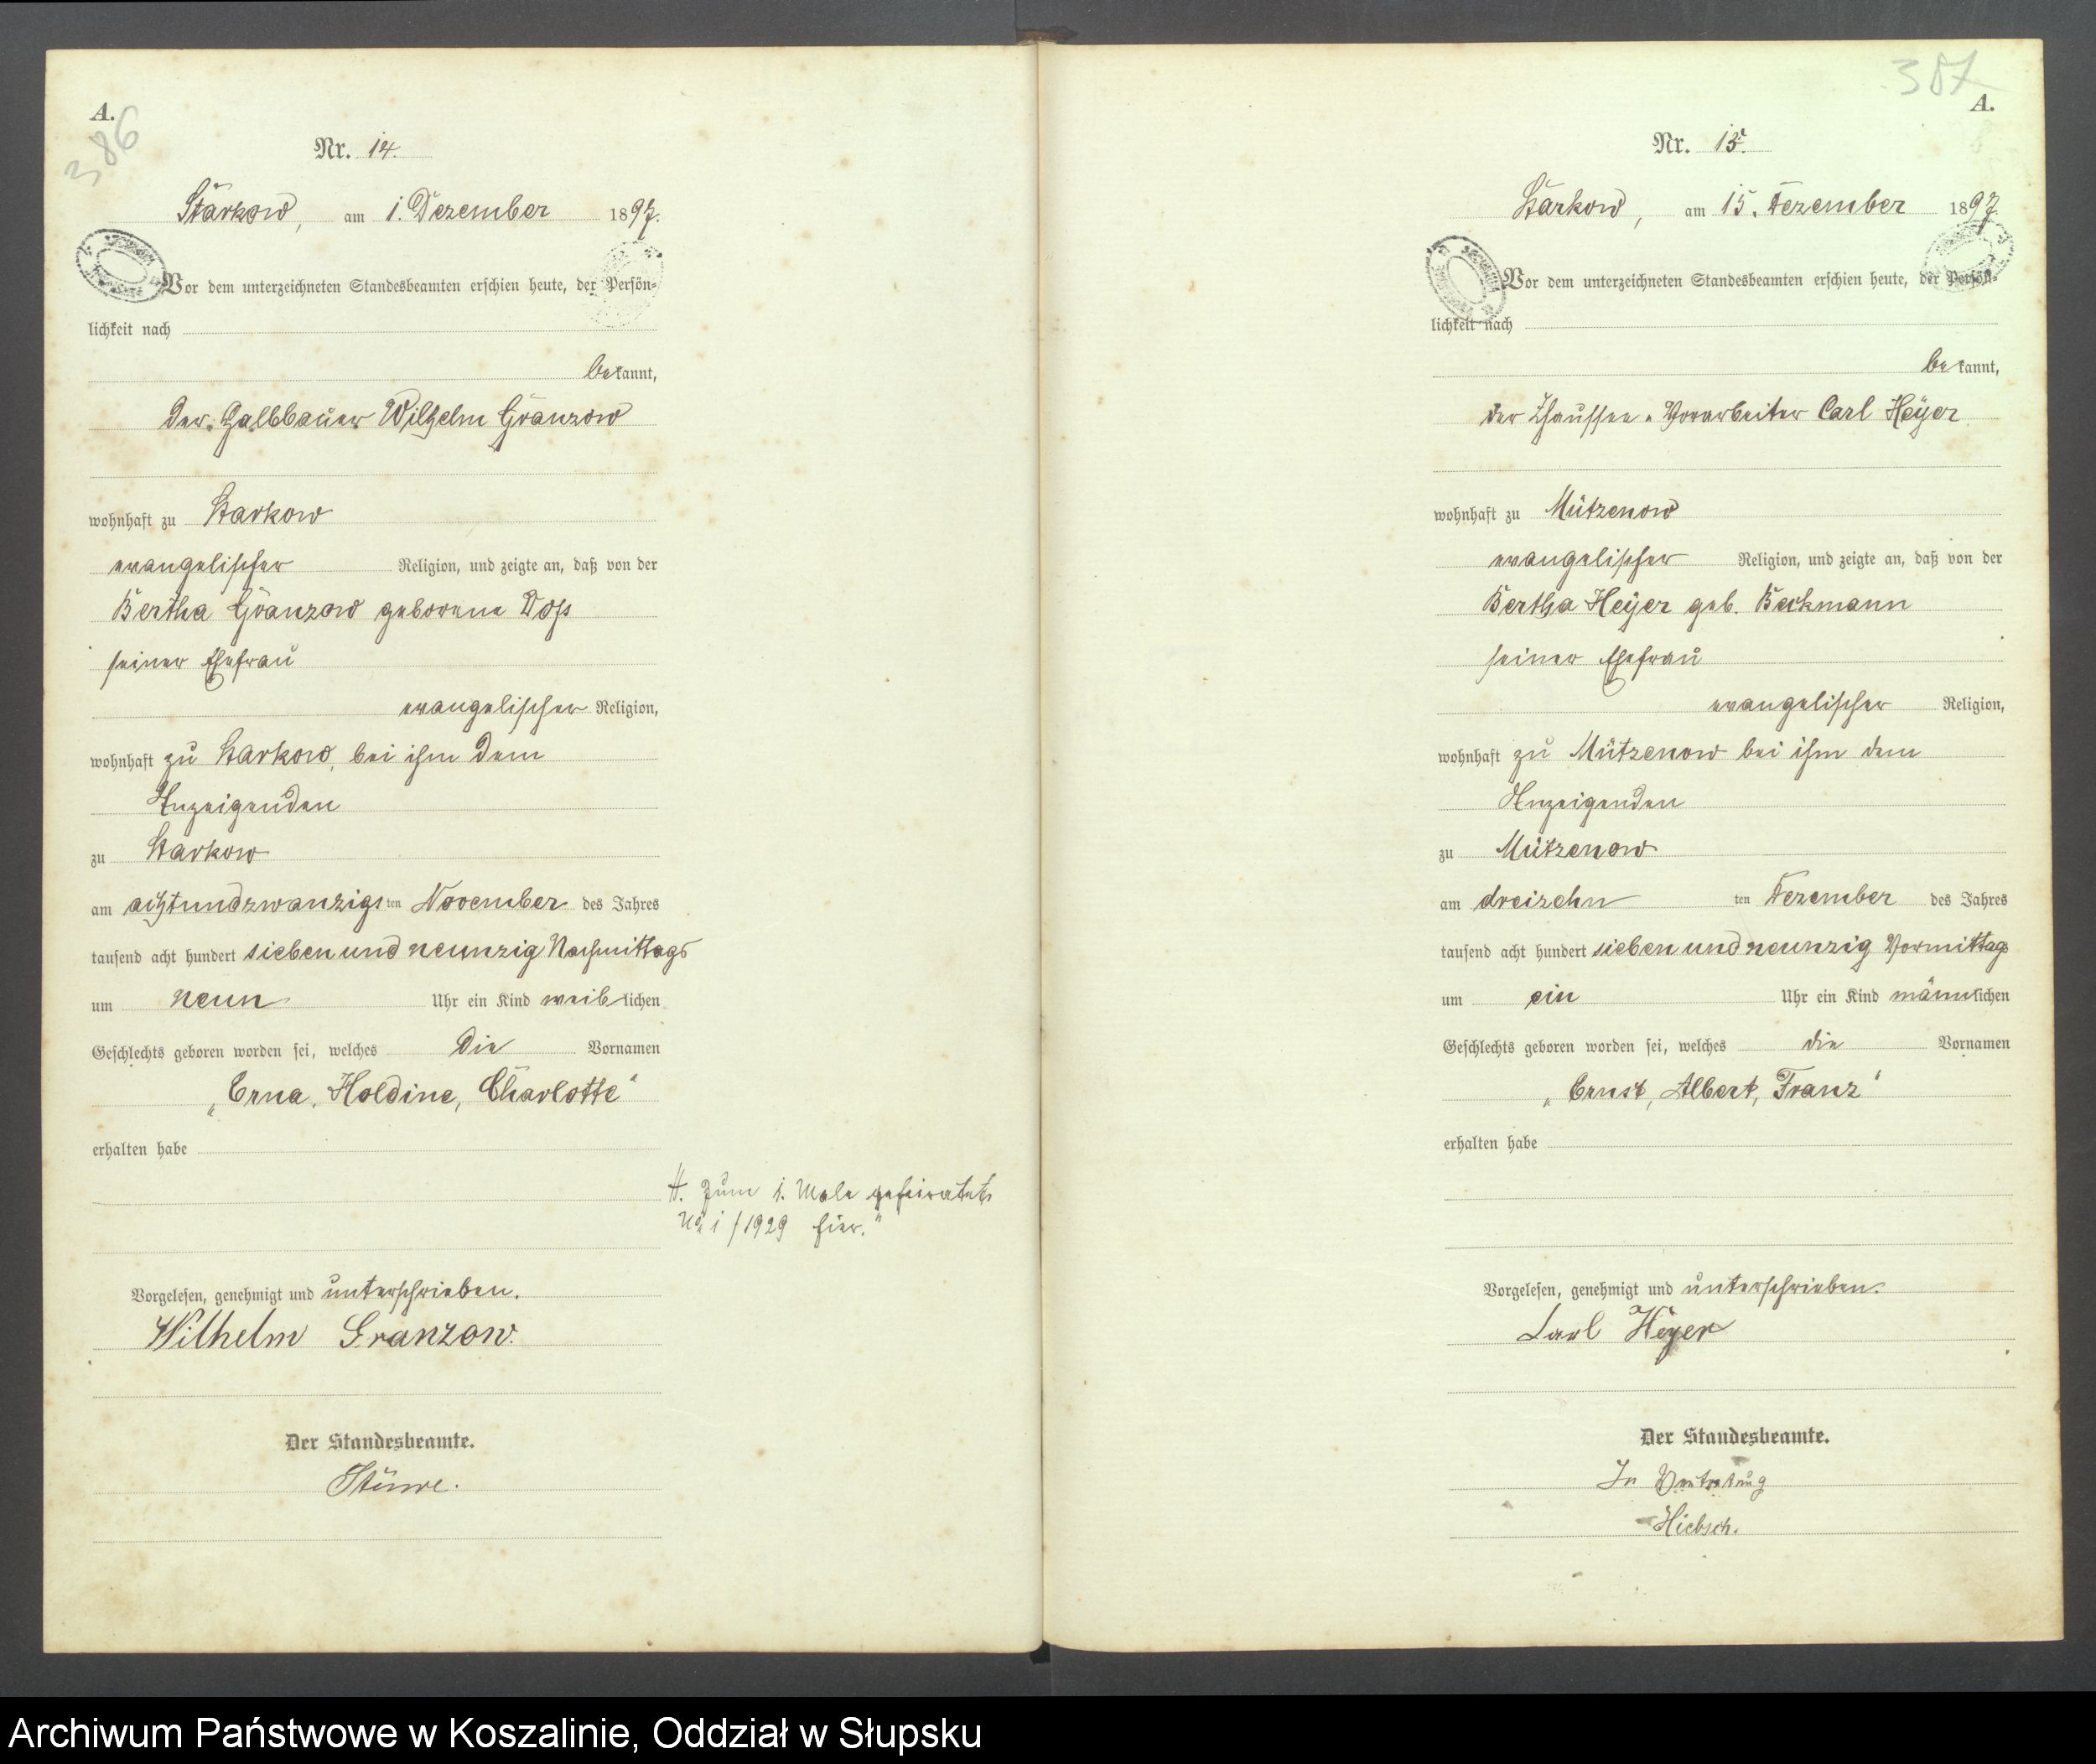 386
A.
Nr. 14.
Starkow, am 1. Dezember 1897.
Vor dem unterzeichneten Standesbeamten erschien heute, der Persön-
lichkeit nach
bekannt,
der Halbbauer Wilhelm Granzow
wohnhaft zu Starkow
evangelischer Religion, und zeigte an, daß von der
Bertha Granzow geborene Voß
seiner Ehefrau
evangelischer Religion,
wohnhaft zu Starkow, bei ihm dem
Anzeigenden
zu Starkow
am achtundzwanzigsten November des Jahres
tausend acht hundert siebenundneunzig Nachmittags
um neun Uhr ein Kind weiblichen
Geschlechts geboren worden sei, welches die Vornamen
„Erna, Holdine, Charlotte“
erhalten habe
H. Zum 1. Male geheiratet
No 1/1929 hier."
Vorgelesen, genehmigt und unterschrieben.
Wilhelm Granzow.
Der Standesbeamte.
Stüwe.
387
A.
Nr. 15.
Starkow, am 15. Dezember 1897.
Vor dem unterzeichneten Standesbeamten erschien heute, der Persön-
lichkeit nach
bekannt,
der Chaussee-Vorarbeiter Carl Heyer
wohnhaft zu Mützenow
evangelischer Religion, und zeigte an, daß von der
Bertha Heyer geb. Beckmann
seiner Ehefrau
evangelischer Religion,
wohnhaft zu Mützenow bei ihm dem
Anzeigenden
zu Mützenow
am dreizehnten Dezember des Jahres
tausend acht hundert siebenundneunzig Vormittags
um ein Uhr ein Kind männlichen
Geschlechts geboren worden sei, welches die Vornamen
„Ernst, Albert, Franz“
erhalten habe
Vorgelesen, genehmigt und unterschrieben.
Carl Heyer
Der Standesbeamte.
In Vertretung
Hiebsch.
Archiwum Państwowe w Koszalinie, Oddział w Słupsku